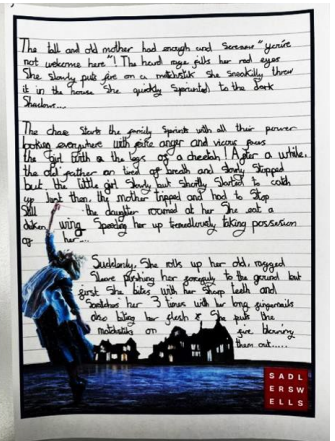 The tall and old mother had enough and screams "you're
not welcome here"! The heard rage fills her red eyes
She slowly puts fire on a matchstick She sneakilly threw
it in the house She quickly sprinted to the dark
Shadows....
The chase starts the family Sprints with all their power
looking everywhere with pure anger and vicious faces
the girl with a the legs of a cheetah! After a while,
the old father on tired of breath and slowly stopped
but, the little girl slowly but shortly started to catch
up Just than the mother tripped and had to stop
Still the daughter roamed at her She eat a
chicken wing Speeding her up tremendously taking possesion
of her....
Suddenly, She rolls up her old, rugged
Sleeves pushing her to the ground but
first She bites with her sharp teeth and
Scratches her 3 times with her long fingernails
also biting her flesh & She puts the
matchsticks on fire blowing
them out.....
SADL
ERSW
ELLS